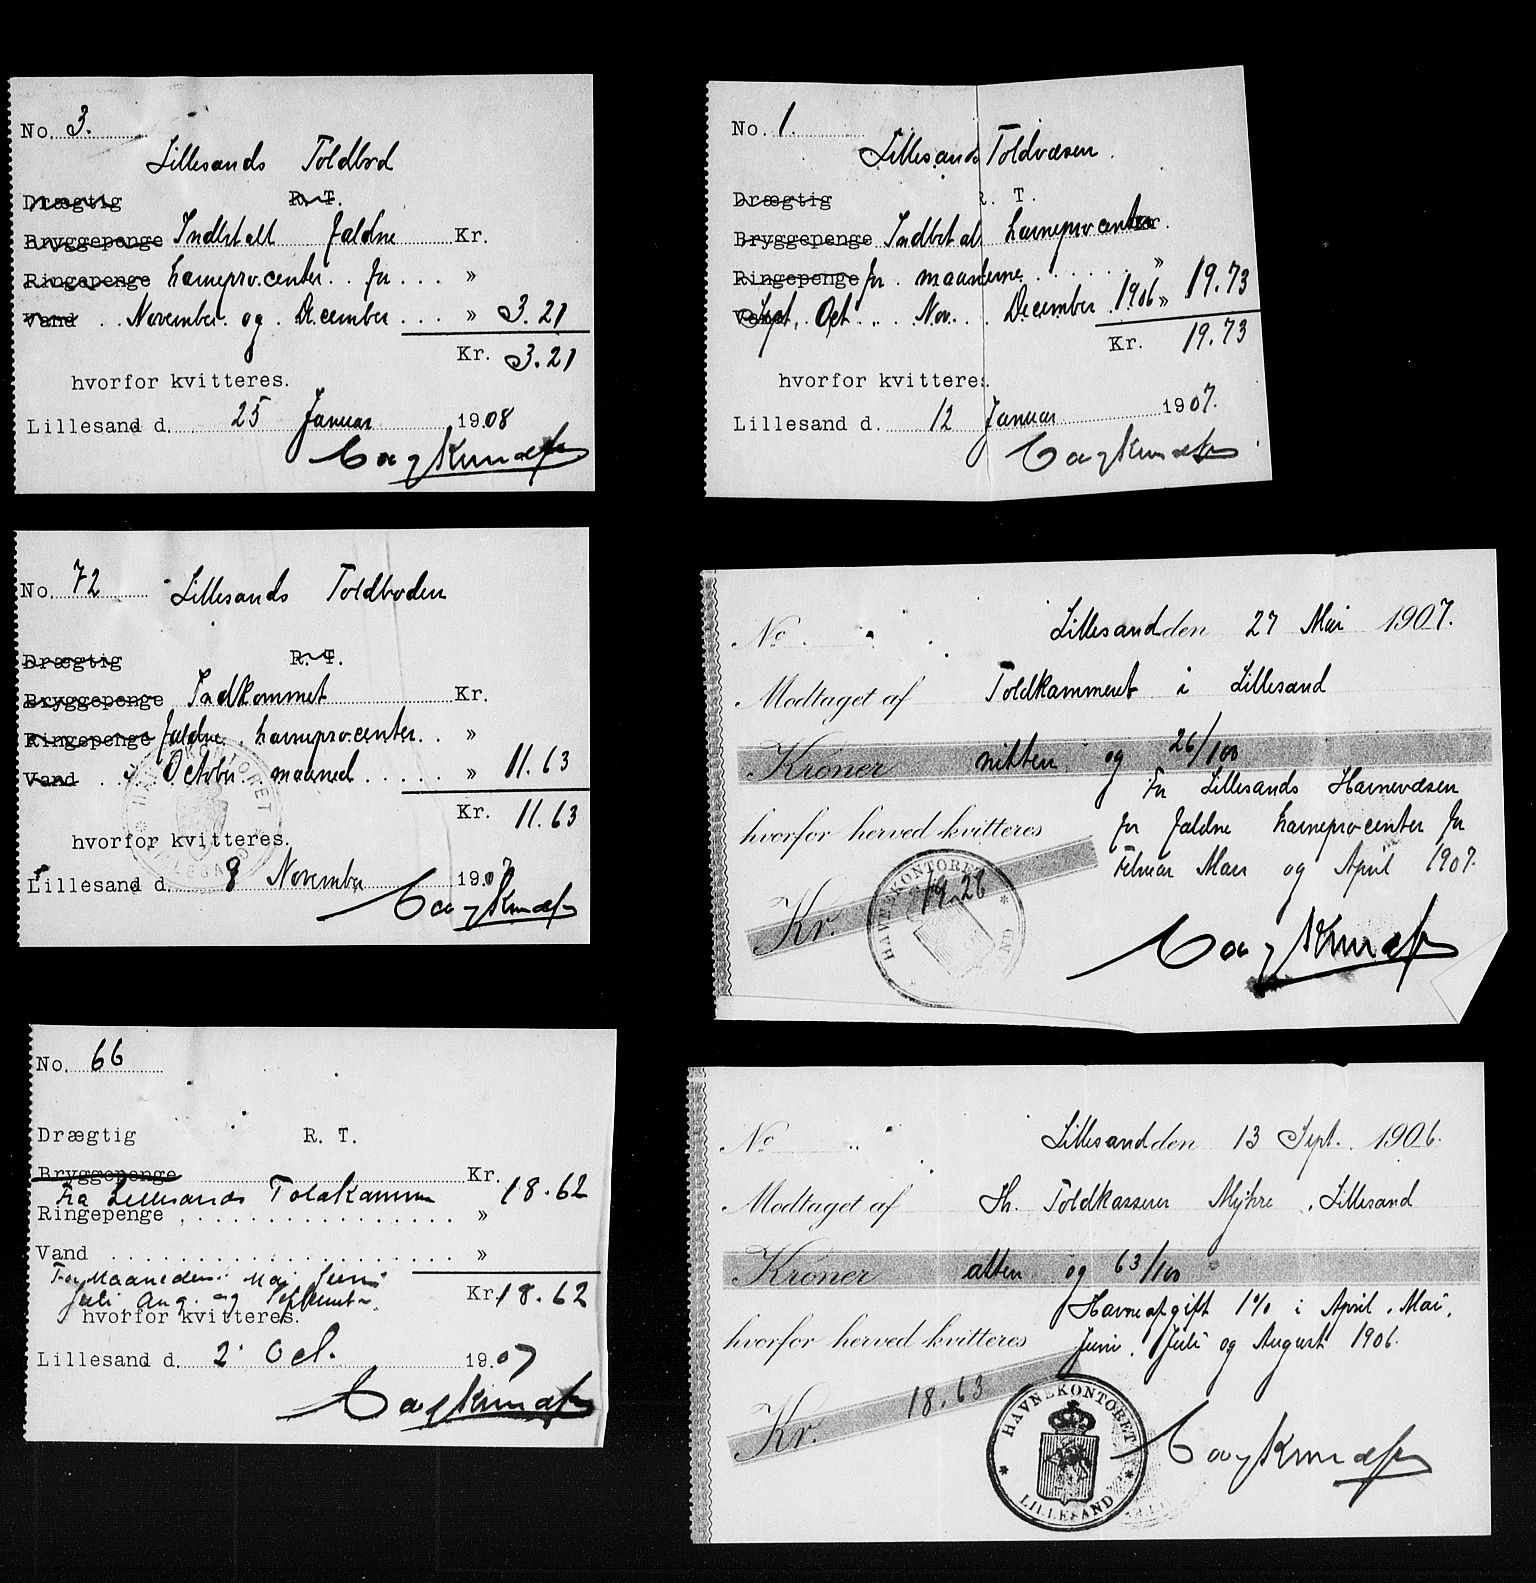 No. 3.
Lillesands Toldbod
Drægtig R. T.
Bryggepenge Indbetalt faldne Kr.
Ringepenge havneprocenter for »
Vand November og December » 3.21
Kr. 3.21
hvorfor kvitteres.
Lillesand d. 25 Januar 1908
No. 72 Lillesands Toldboden
Drægtig R. T.
Bryggepenge Indkommet Kr.
Ringepenge faldne havneprocenter »
Vand October maaned » 11.63
Kr. 11.63
hvorfor kvitteres.
HAVNEKONTORET LILLESAND
Lillesand d. 8 November 1907
No. 66
Drægtig R. T.
Bryggepenge Kr. 18.62
Fra Lillesands Toldkammer
Ringepenge »
Vand »
For Maanederne Mai Juni
Juli Aug. og September. Kr. 18.62
hvorfor kvitteres.
Lillesand d. 2 Oct. 1907
No. 1.
Lillesands Toldvæsen.
Drægtig R. T.
Bryggepenge Indbetalt havneprocenter Kr.
Ringepenge for maanderne »
Vand Sept. Oct Nov. December 1906 » 19.73
Kr. 19.73
hvorfor kvitteres.
Lillesand d. 12 Januar 1907.
No Lillesand den 27 Mai 1907.
Modtaget af Toldkammeret i Lillesand
Kroner nitten og 26/100
For Lillesands Havnevæsen
hvorfor herved kvitteres for faldne havneprocenter for
Februar Mars og April 1907.
Kr. 19.26
HAVNEKONTORET
No Lillesand den 13 Sept. 1906.
Modtaget af Hr. Toldkasserer Myhre, Lillesand
Kroner atten og 63/100
Havneafgift 1% i April, Mai,
hvorfor herved kvitteres Juni, Juli og August 1906.
Kr. 18.63
HAVNEKONTORET
LILLESAND